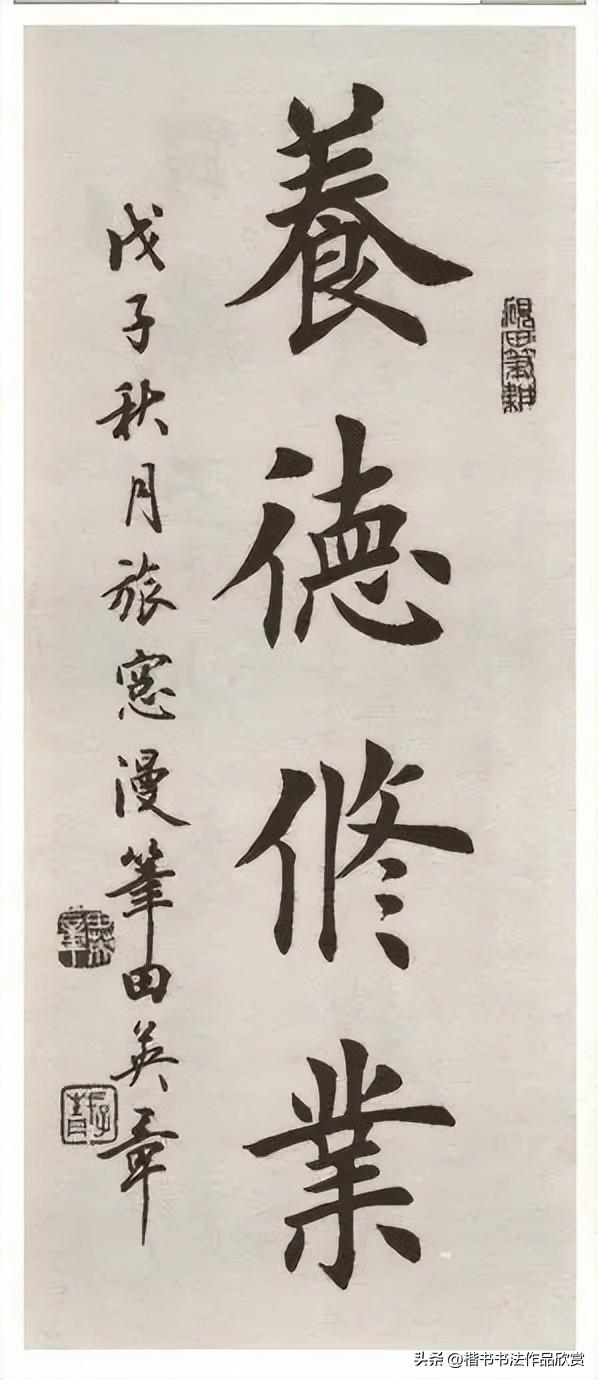 硯田筆耕
養德修業
戊子秋月旅窓漫筆田英章
头条 @楷书书法作品欣赏